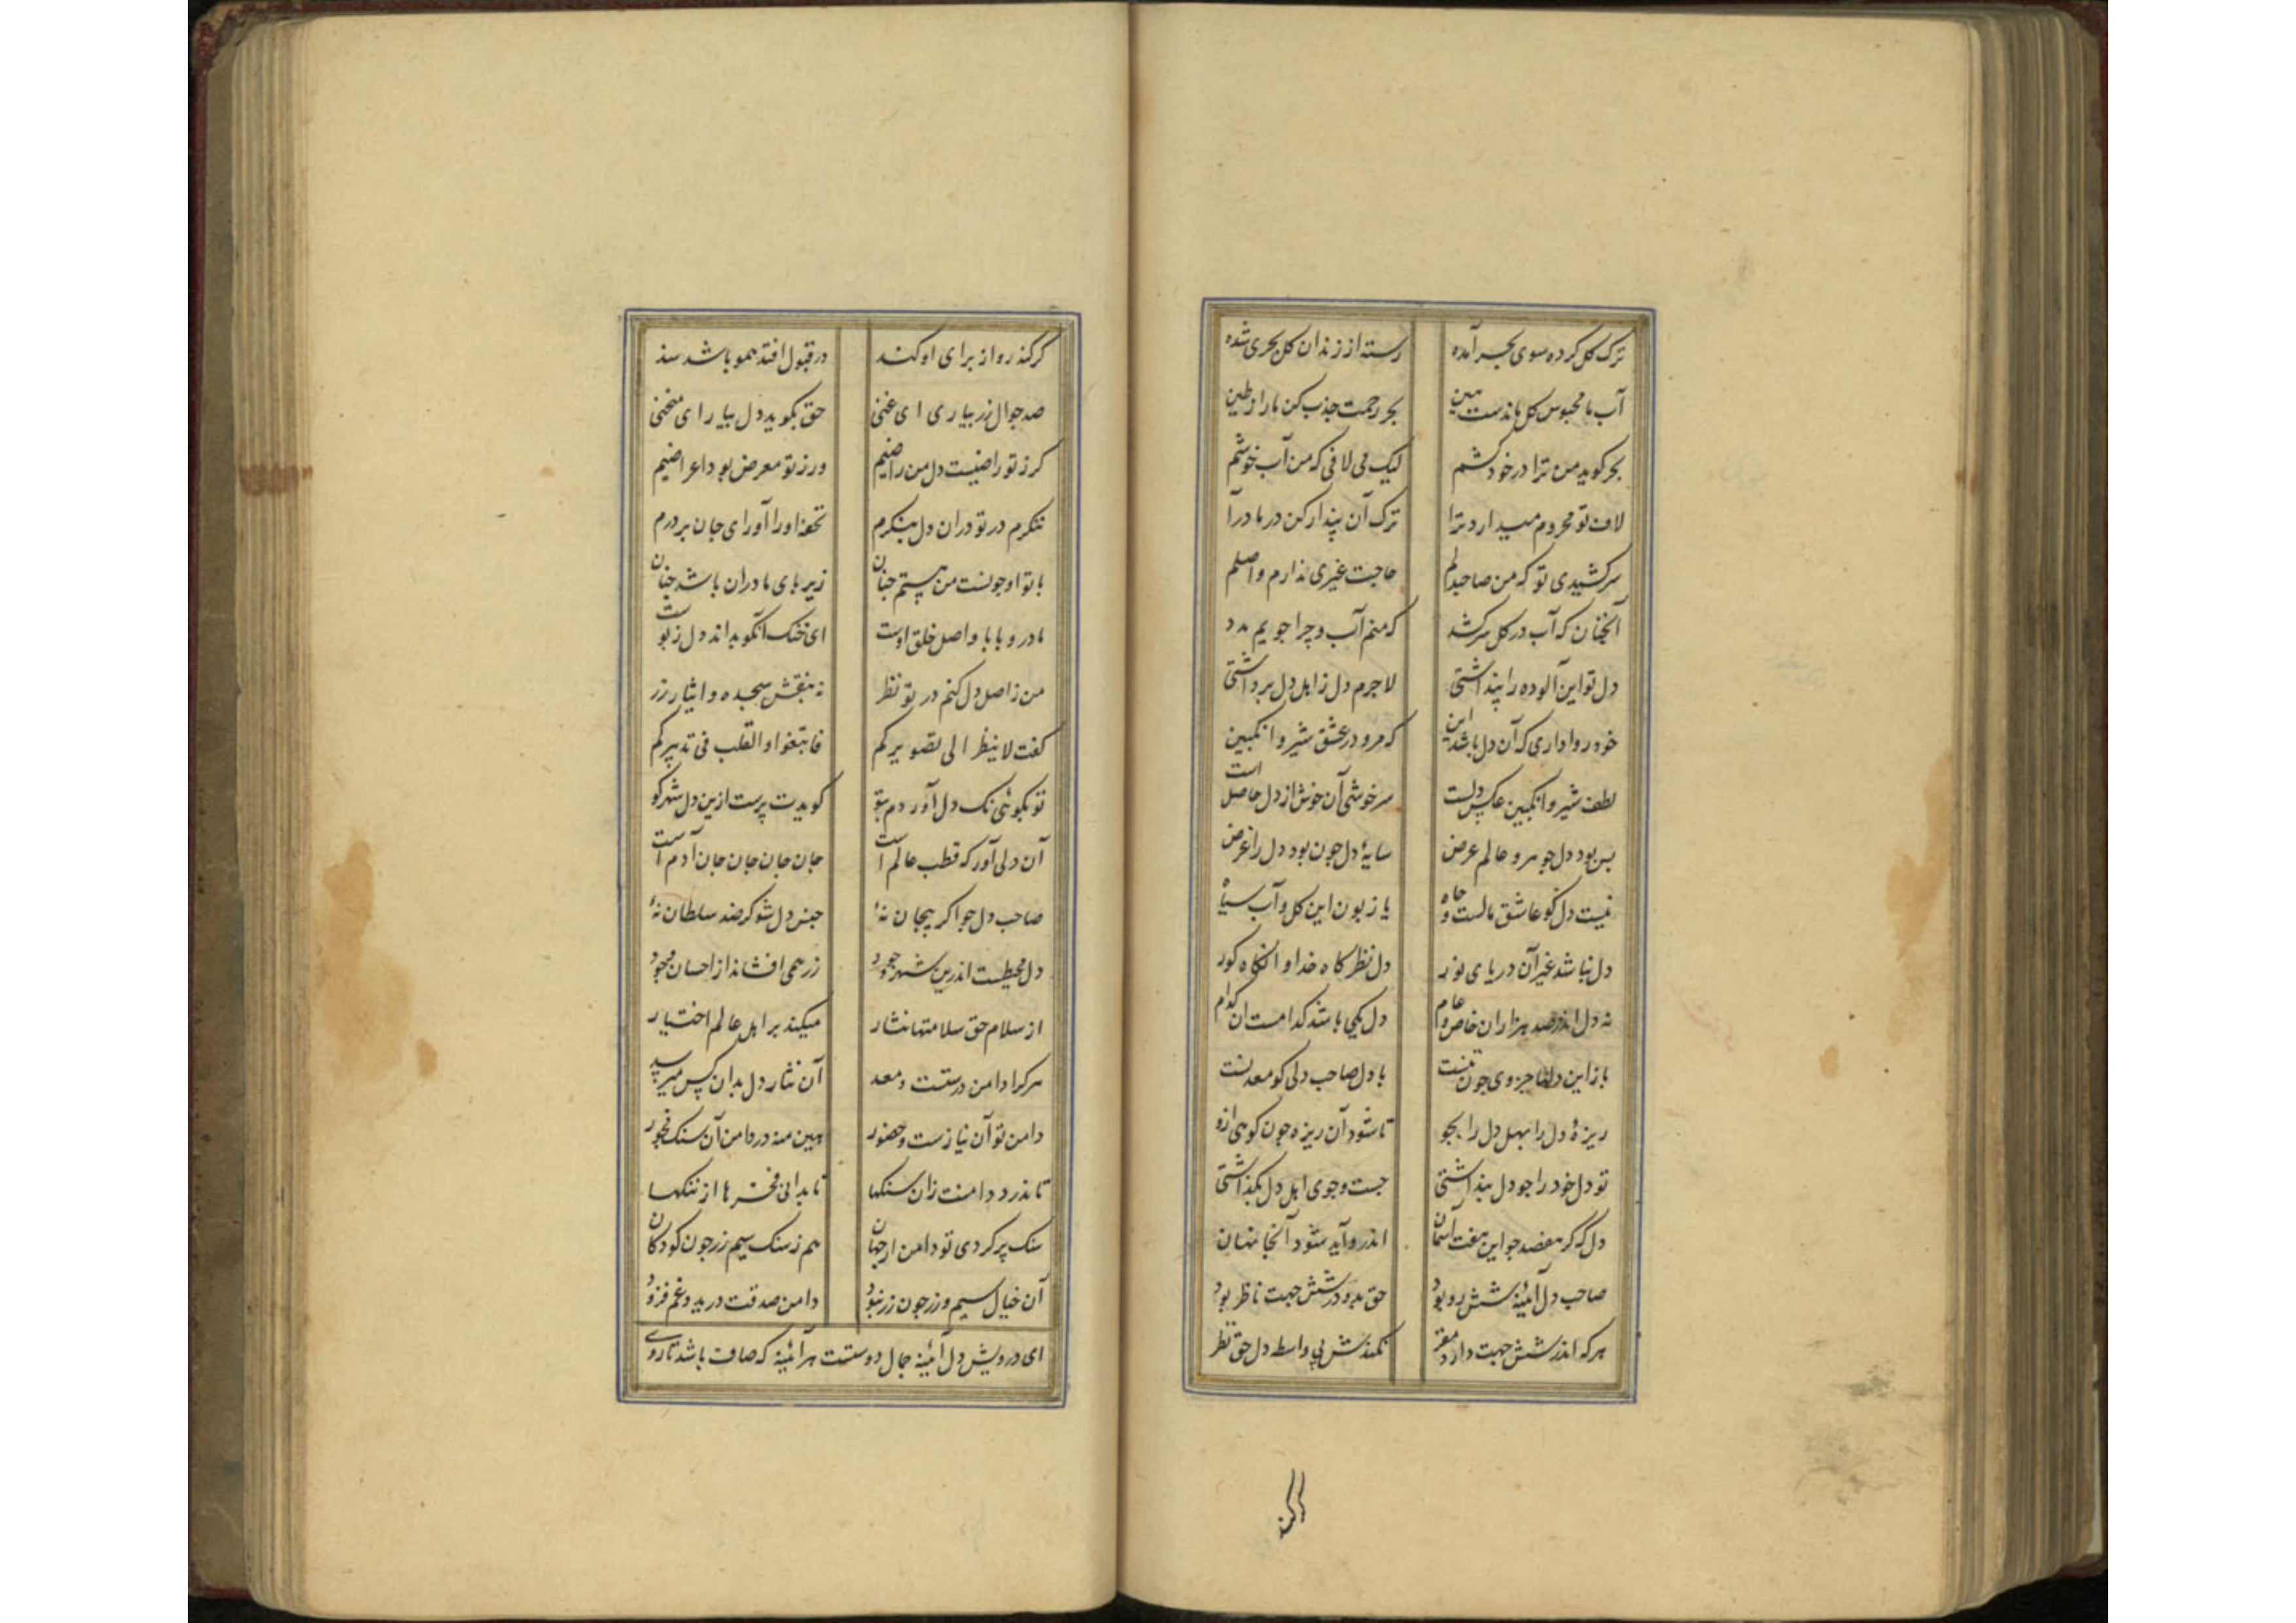 ترک کل کرده سوی بحر آمده رسته از زندان کل بحری شده
آب ما محبوس کل ماندست هین بحر رحمت جذب کن ما را ز طین
بحر کوید من ترا در خود کشم لیک می لافی که من آب خوشم
لاف تو محروم میدارد ترا ترک آن پندار کن در ما درآ
سرکشیدی تو که من صاحبدلم حاجت غیری ندارم واصلم
آنچنان که آب در کل سر کشد که منم آب و چرا جویم مدد
دل تو این آلوده را پنداشتی لاجرم دل ز اهل دل برداشتی
خود روا داری که آن دل باشد این که مرو در عشق شیر و انکبین
لطف شیر و انکبین عکس دلست سرخوشی آن خوش از دل حاصل است
پس بود دل جوهر و عالم عرض سایهٔ دل چون بود دل را غرض
نیست دل کو عاشق مالست و جاه یا زبون این کل و آب سیاه
دل نباشد غیر آن دریای نور دل نظرکاه خدا وانکاه کور
نه دل اندر صد هزاران خاص و عام دل یکی باشد کدامست آن کدام
باز این دلها جزوی چون تنست با دل صاحب دلی کو معدنست
ریزهٔ دل را بهل دل را بجو تا شود آن ریزه چون کوهی ازو
تو دل خود را چو دل پنداشتی جست و جوی اهل دل بکذاشتی
دل که کر هفصد چو این هفت آسمان اندرو آید شود آنجا نهان
صاحب دل آئینهٔ شش رو بود حق بدو در شش جهت ناظر بود
هرکه اندر شش جهت دارد مقر نکندش بی واسطه دل حق نظر
کر کند
کر کند رو از برای او کند در قبول افتد همو باشد سند
صد جوال زر بیاری ای غنی حق بکوید دل بیار ای منحنی
کر ز تو راضیست دل من راضیم ور ز تو معرض بود اعراضیم
ننکرم در تو در آن دل بنکرم تحفه او را آور ای جان بر درم
با تو او چونست من هستم چنان زیر پای مادران باشد جنان
مادر و بابا و اصل خلق اوست ای خنک آنکو بداند دل ز پوست
من ز اصل دل کنم در تو نظر نه بنقش سجده و ایثار زر
کفت لا ینظر الی تصویرکم فابتغوا و القلب فی تدبیرکم
تو بکوئی نک دل آوردم بتو کویدت پرست ازین دل شهر کو
آن دلی آور که قطب عالم است جان جان جان جان آدم است
صاحب دل جو اکر بیجان نهٔ جنس دل شو کر ضد سلطان نهٔ
دل محیطست اندرین شهر وجود زر همی افشاند از احسان وجود
از سلام حق سلامتها نثار میکند بر اهل عالم اختیار
هرکرا دامن درستست و معد آن نثار دل بدان کس میرسد
دامن تو آن نیازست و حضور هین منه در دامن آن سنک فجور
تا ندرد دامنت زان سنکها تا بدانی فخرها از ننکها
سنک پر کردی تو دامن از جهان هم ز سنک سیم زر چون کودکان
آن خیال سیم و زر چون زر نبود دامن صدقت درید و غم فزود
ای درویش دل آئینهٔ جمال دوستست هر آئینه که صاف باشد تا روی